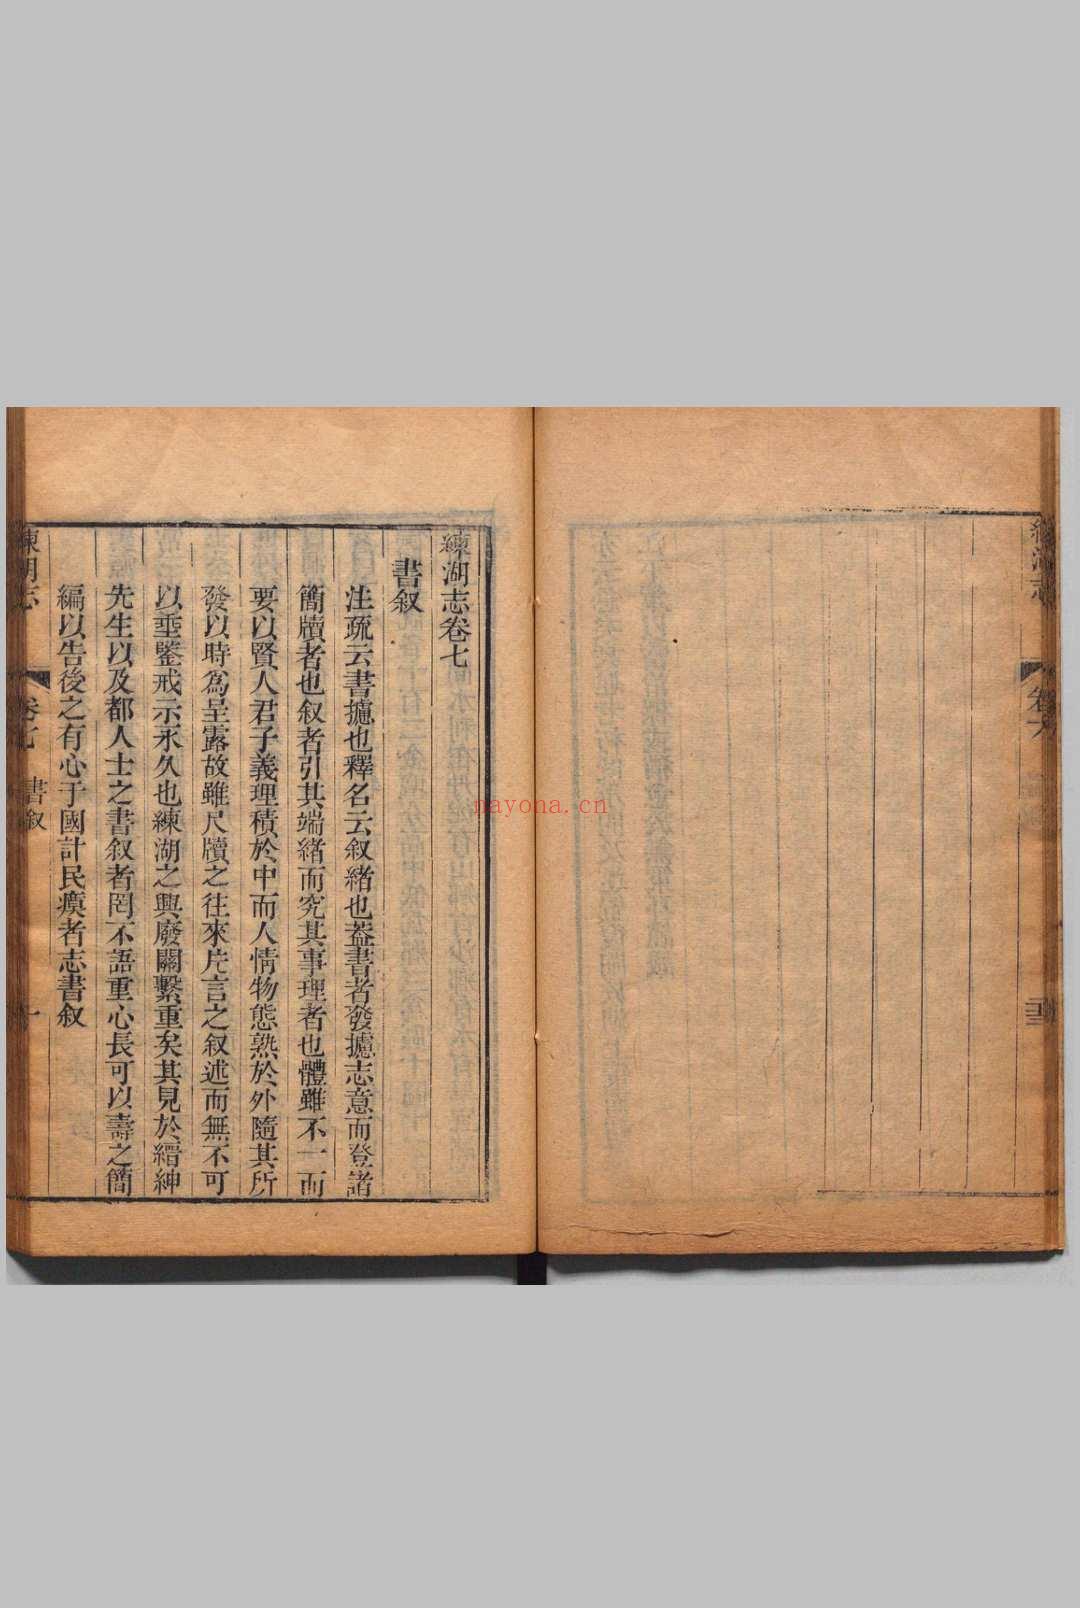 練湖志
卷六
練湖志卷七
書叙
注疏云書攄也釋名云叙緒也葢書者發攄志意而登諸
簡牘者也叙者引其端緒而究其事理者也體雖不一而
要以賢人君子義理積於中而人情物態熟於外隨其所
發以時為呈露故雖尺牘之往來片言之叙述而無不可
以埀鑒戒示永久也練湖之興廢關繫重矣其見於縉紳
先生以及都人士之書叙者罔不語重心長可以壽之簡
編以告後之有心于國計民瘼者志書叙
練湖志
卷七
書叙
一
nayona.cn